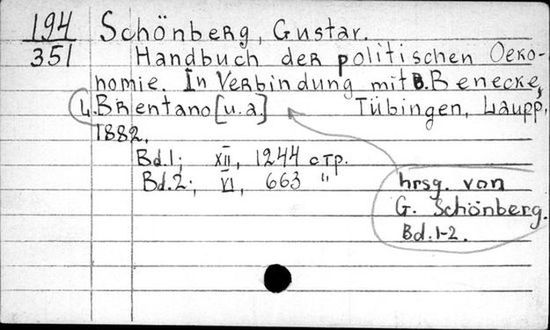 194
351
Schönberg, Gustav.
Handbuch der politischen Oeko-
nomie. In Verbindung mit B. Benecke,
L. Brentano [u.a.] Tübingen, Laupp,
1882.
Bd.1; XII, 1244 стр.
Bd.2; VI, 663 "
hrsg. von
G. Schönberg.
Bd.1-2.